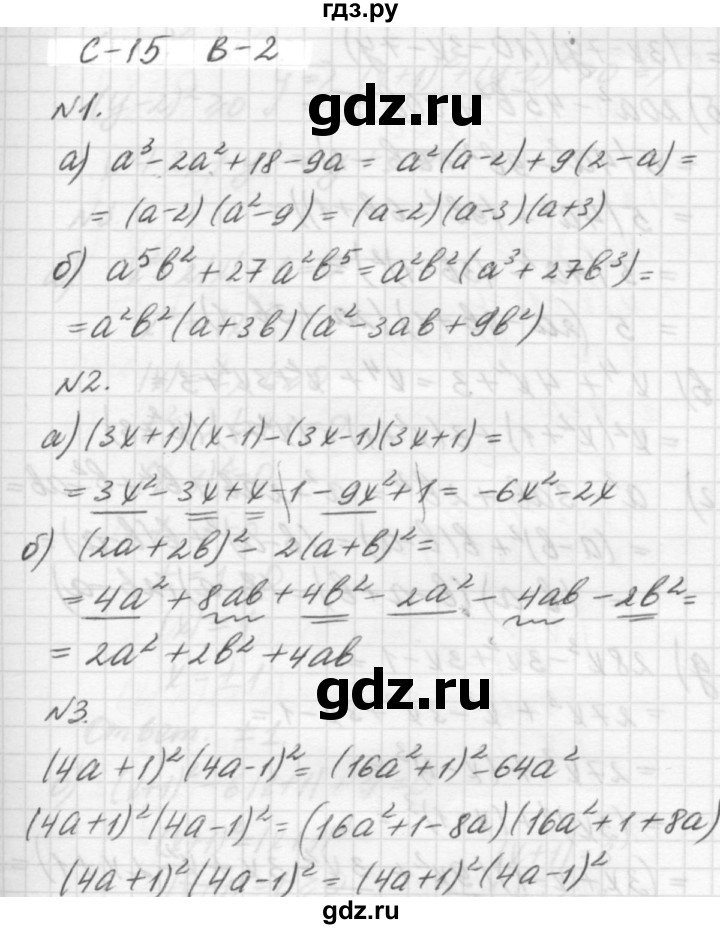 гдз.ру
С-15 В-2
gdz.ru
№1.
а) a³-2a²+18-9a = a²(a-2)+9(2-a)=
= (a-2)(a²-9) = (a-2)(a-3)(a+3)
б) a⁵b²+27a²b⁵=a²b²(a³+27b³)=
=a²b²(a+3b)(a²-3ab+9b²)
№2.
а) (3x+1)(x-1)-(3x-1)(3x+1)=
= 3x²-3x+x-1-9x²+1= -6x²-2x
б) (2a+2b)²-2(a+b)²=
= 4a²+8ab+4b²-2a²-4ab-2b²=
= 2a²+2b²+4ab
gdz.ru
№3.
(4a+1)²(4a-1)²=(16a²+1)²-64a²
(4a+1)²(4a-1)²=(16a²+1-8a)(16a²+1+8a)
(4a+1)²(4a-1)²=(4a+1)²(4a-1)²
gdz.ru